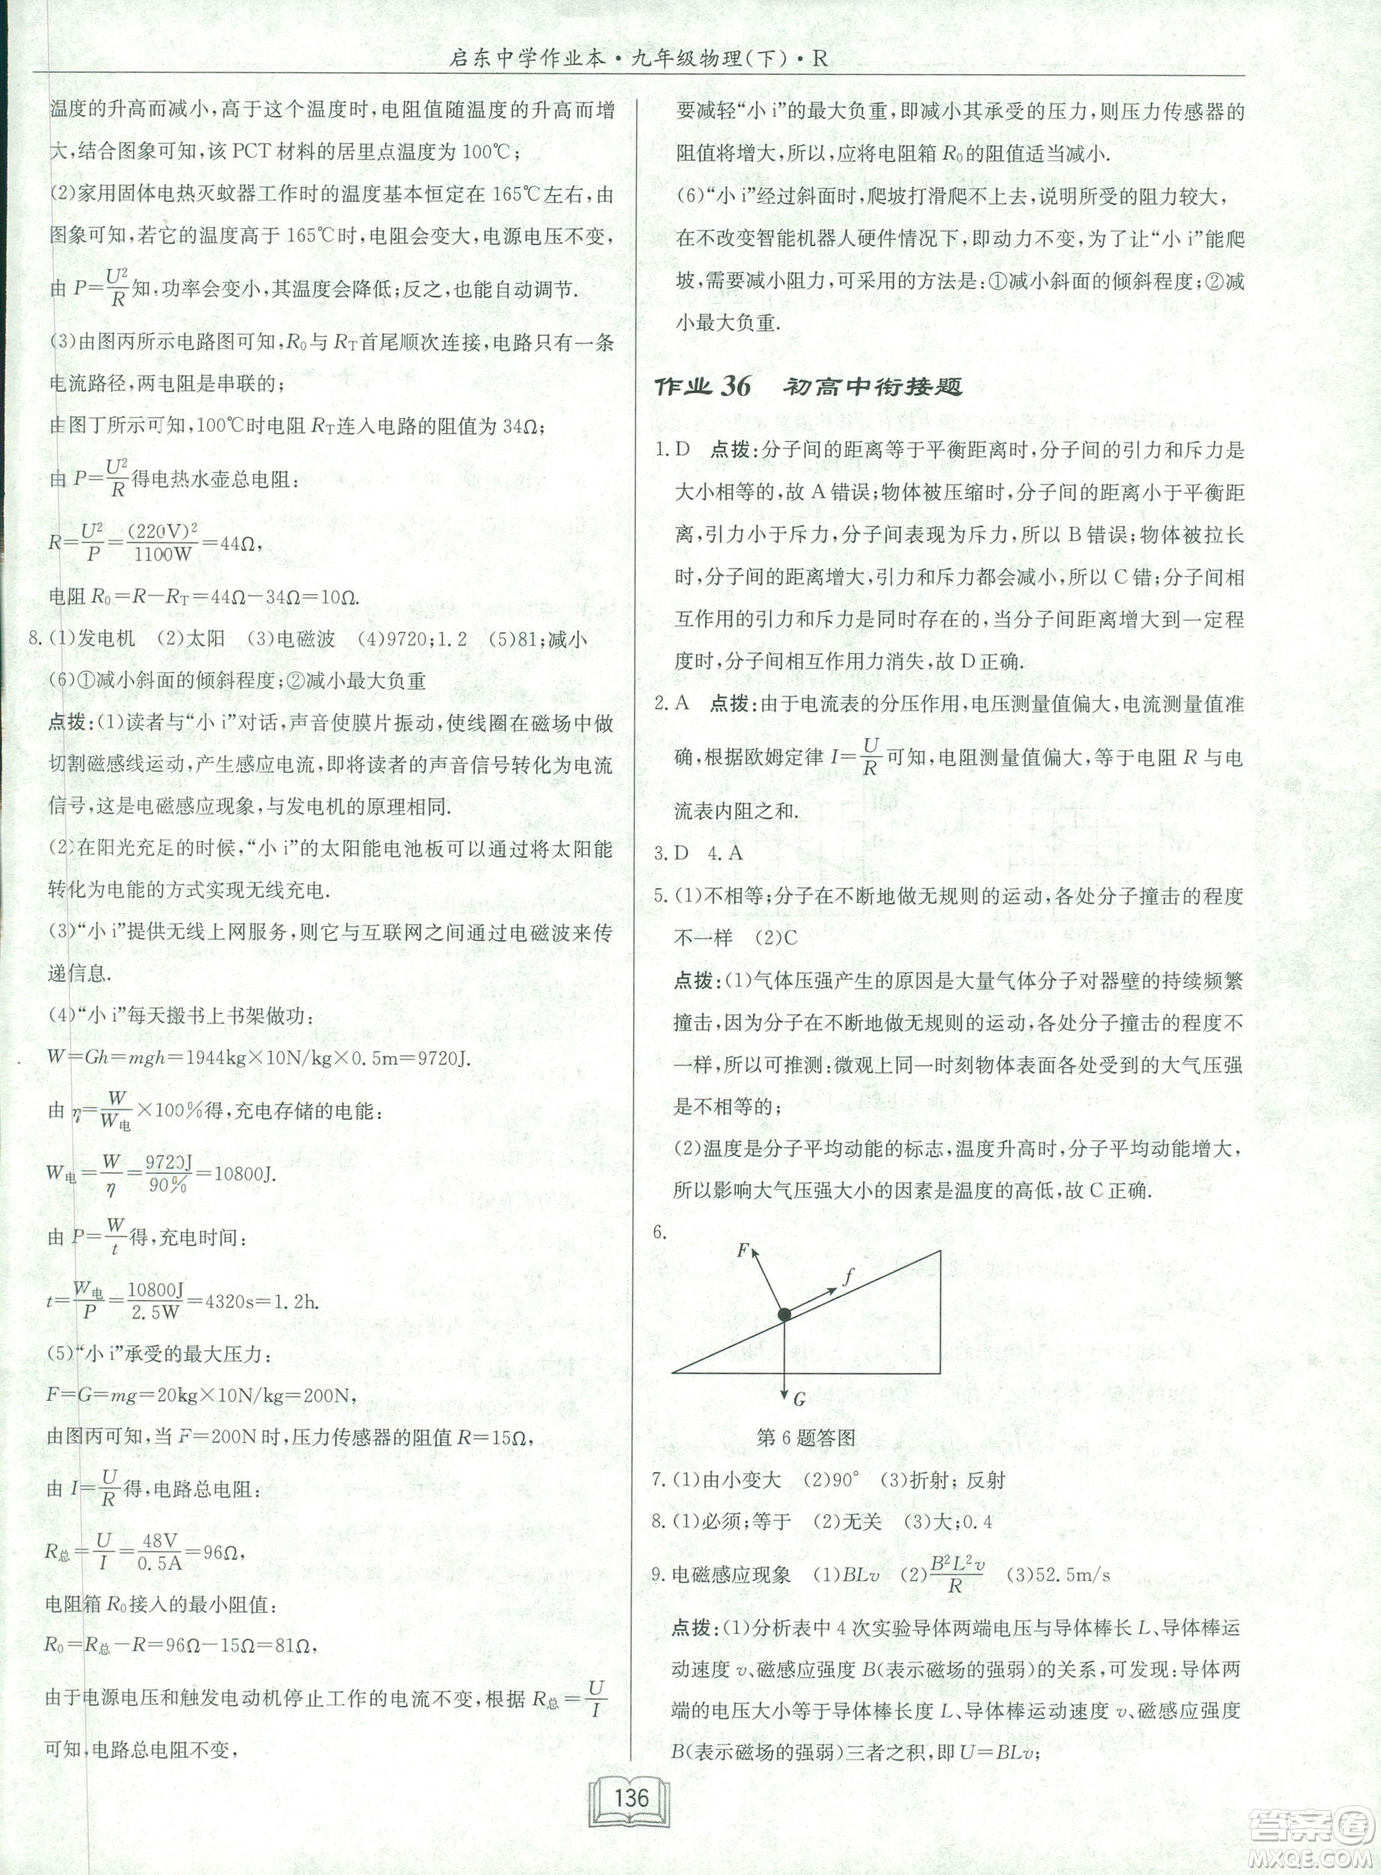 启东中学作业本·九年级物理(下)·R
温度的升高而减小,高于这个温度时,电阻值随温度的升高而增
大,结合图象可知,该 PCT 材料的居里点温度为100℃;
(2)家用固体电热灭蚊器工作时的温度基本恒定在165℃左右,由
图象可知,若它的温度高于165℃时,电阻会变大,电源电压不变,
由 P=U²/R知,功率会变小,其温度会降低;反之,也能自动调节.
(3)由图丙所示电路图可知,R₀与 R_T首尾顺次连接,电路只有一条
电流路径,两电阻是串联的;
由图丁所示可知,100℃时电阻 R_T连入电路的阻值为34Ω;
由 P=U²/R得电热水壶总电阻:
R=U²/P=(220V)²/1100W=44Ω,
电阻 R₀=R−R_T=44Ω−34Ω=10Ω.
8.(1)发电机 (2)太阳 (3)电磁波 (4)9720;1.2 (5)81;减小
(6)①减小斜面的倾斜程度;②减小最大负重
点拨:(1)读者与“小i”对话,声音使膜片振动,使线圈在磁场中做
切割磁感线运动,产生感应电流,即将读者的声音信号转化为电流
信号,这是电磁感应现象,与发电机的原理相同.
(2)在阳光充足的时候,“小i”的太阳能电池板可以通过将太阳能
转化为电能的方式实现无线充电.
(3)“小i”提供无线上网服务,则它与互联网之间通过电磁波来传
递信息.
(4)“小i”每天搬书上书架做功:
W=Gh=mgh=1944kg×10N/kg×0.5m=9720J.
由 η=W/W电×100%得,充电存储的电能:
W电=W/η=9720J/90%=10800J.
由 P=W/t得,充电时间:
t=W电/P=10800J/2.5W=4320s=1.2h.
(5)“小i”承受的最大压力:
F=G=mg=20kg×10N/kg=200N,
由图丙可知,当 F=200N时,压力传感器的阻值 R=15Ω,
由 I=U/R得,电路总电阻:
R总=U/I=48V/0.5A=96Ω,
电阻箱 R₀接入的最小阻值:
R₀=R总−R=96Ω−15Ω=81Ω,
由于电源电压和触发电动机停止工作的电流不变,根据 R总=U/I
可知,电路总电阻不变,
要减轻“小i”的最大负重,即减小其承受的压力,则压力传感器的
阻值将增大,所以,应将电阻箱 R₀的阻值适当减小.
(6)“小i”经过斜面时,爬坡打滑爬不上去,说明所受的阻力较大,
在不改变智能机器人硬件情况下,即动力不变,为了让“小i”能爬
坡,需要减小阻力,可采用的方法是:①减小斜面的倾斜程度;②减
小最大负重.
作业36 初高中衔接题
1.D 点拨:分子间的距离等于平衡距离时,分子间的引力和斥力是
大小相等的,故A错误;物体被压缩时,分子间的距离小于平衡距
离,引力小于斥力,分子间表现为斥力,所以B错误;物体被拉长
时,分子间的距离增大,引力和斥力都会减小,所以C错;分子间相
互作用的引力和斥力是同时存在的,当分子间距离增大到一定程
度时,分子间相互作用力消失,故D正确.
2.A 点拨:由于电流表的分压作用,电压测量值偏大,电流测量值准
确,根据欧姆定律 I=U/R可知,电阻测量值偏大,等于电阻 R 与电
流表内阻之和.
3.D 4.A
5.(1)不相等;分子在不断地做无规则的运动,各处分子撞击的程度
不一样 (2)C
点拨:(1)气体压强产生的原因是大量气体分子对器壁的持续频繁
撞击,因为分子在不断地做无规则的运动,各处分子撞击的程度不
一样,所以可推测:微观上同一时刻物体表面各处受到的大气压强
是不相等的;
(2)温度是分子平均动能的标志,温度升高时,分子平均动能增大,
所以影响大气压强大小的因素是温度的高低,故C正确.
6.
F
f
G
第6题答图
7.(1)由小变大 (2)90° (3)折射;反射
8.(1)必须;等于 (2)无关 (3)大;0.4
9.电磁感应现象 (1)BLv (2)B²L²v/R (3)52.5m/s
点拨:(1)分析表中4次实验导体两端电压与导体棒长 L、导体棒运
动速度 v、磁感应强度 B(表示磁场的强弱)的关系,可发现:导体两
端的电压大小等于导体棒长度 L、导体棒运动速度 v、磁感应强度
B(表示磁场的强弱)三者之积,即 U=BLv;
136
答案圈
MXQE.COM